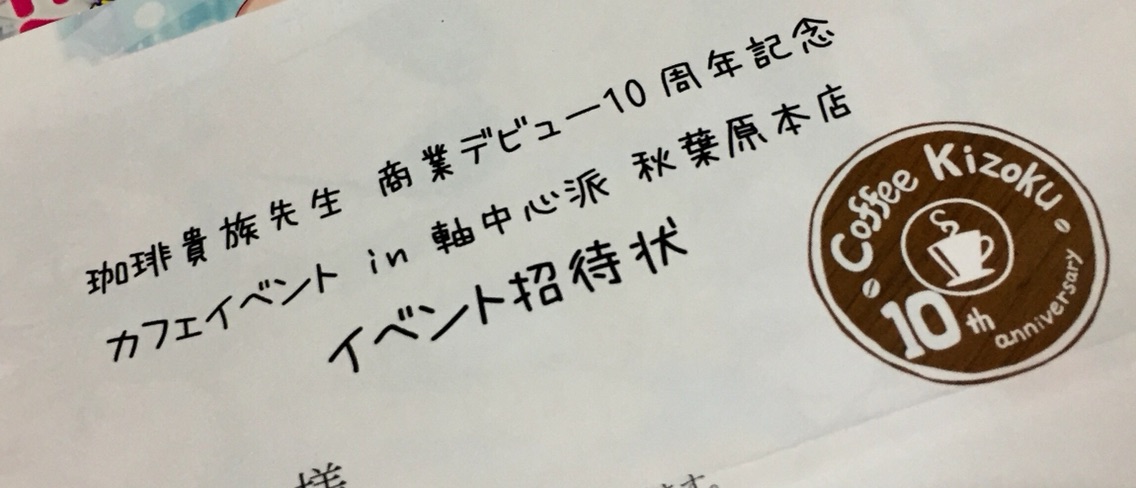 珈琲貴族先生 商業デビュー10周年記念
カフェイベント in 軸中心派 秋葉原本店
イベント招待状
Coffee Kizoku
10th
anniversary
様
ます。